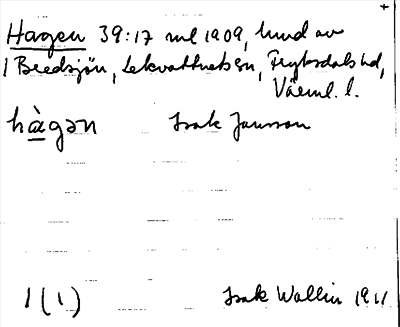 +
Hagen 39:17 ml 1909, lund av
1 Bredsjön, Lekvattnets sn, Fryksdals hd,
Värml. l.
hàgən Isak Jansson
1 (1) Isak Wallin 1911